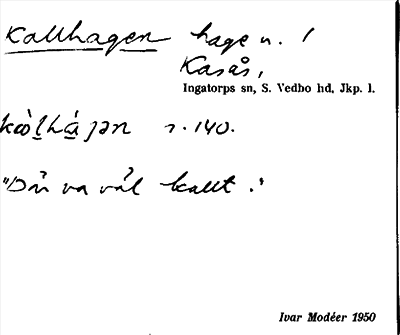 Kallhagen hage n. 1
Kasås,
Ingatorps sn, S. Vedbo hd, Jkp. l.
s. 140.
"Dä va väl kallt."
Ivar Modéer 1950